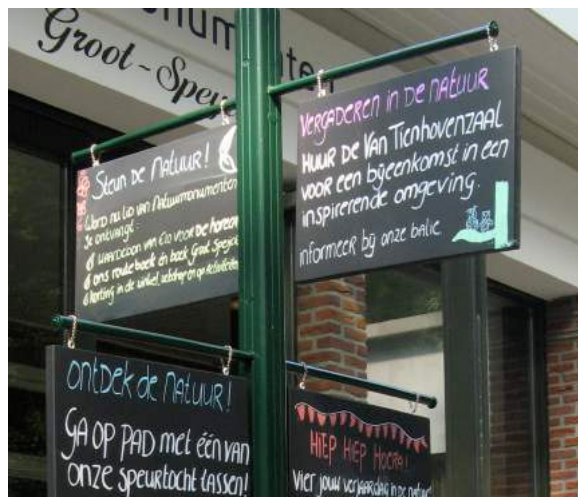 Groot-Speu
Steun de Natuur!
Word nu lid van Natuurmonumenten
Je ontvangt:
waardebon van €10 voor de horeca
ons routeboek én boek Groot Speijck
korting in de winkel, webshop en op activiteiten
VERGADEREN IN DE NATUUR
HUUR DE VAN TIENHOVENZAAL
VOOR EEN BIJEENKOMST IN EEN
INSPIRERENDE OMGEVING.
INFORMEER BIJ ONZE BALIE
ONTDEK DE NATUUR!
GA OP PAD met één van
onze speurtocht tassen!
HIEP HIEP HOERA!
Vier jouw verjaardag in de natuur